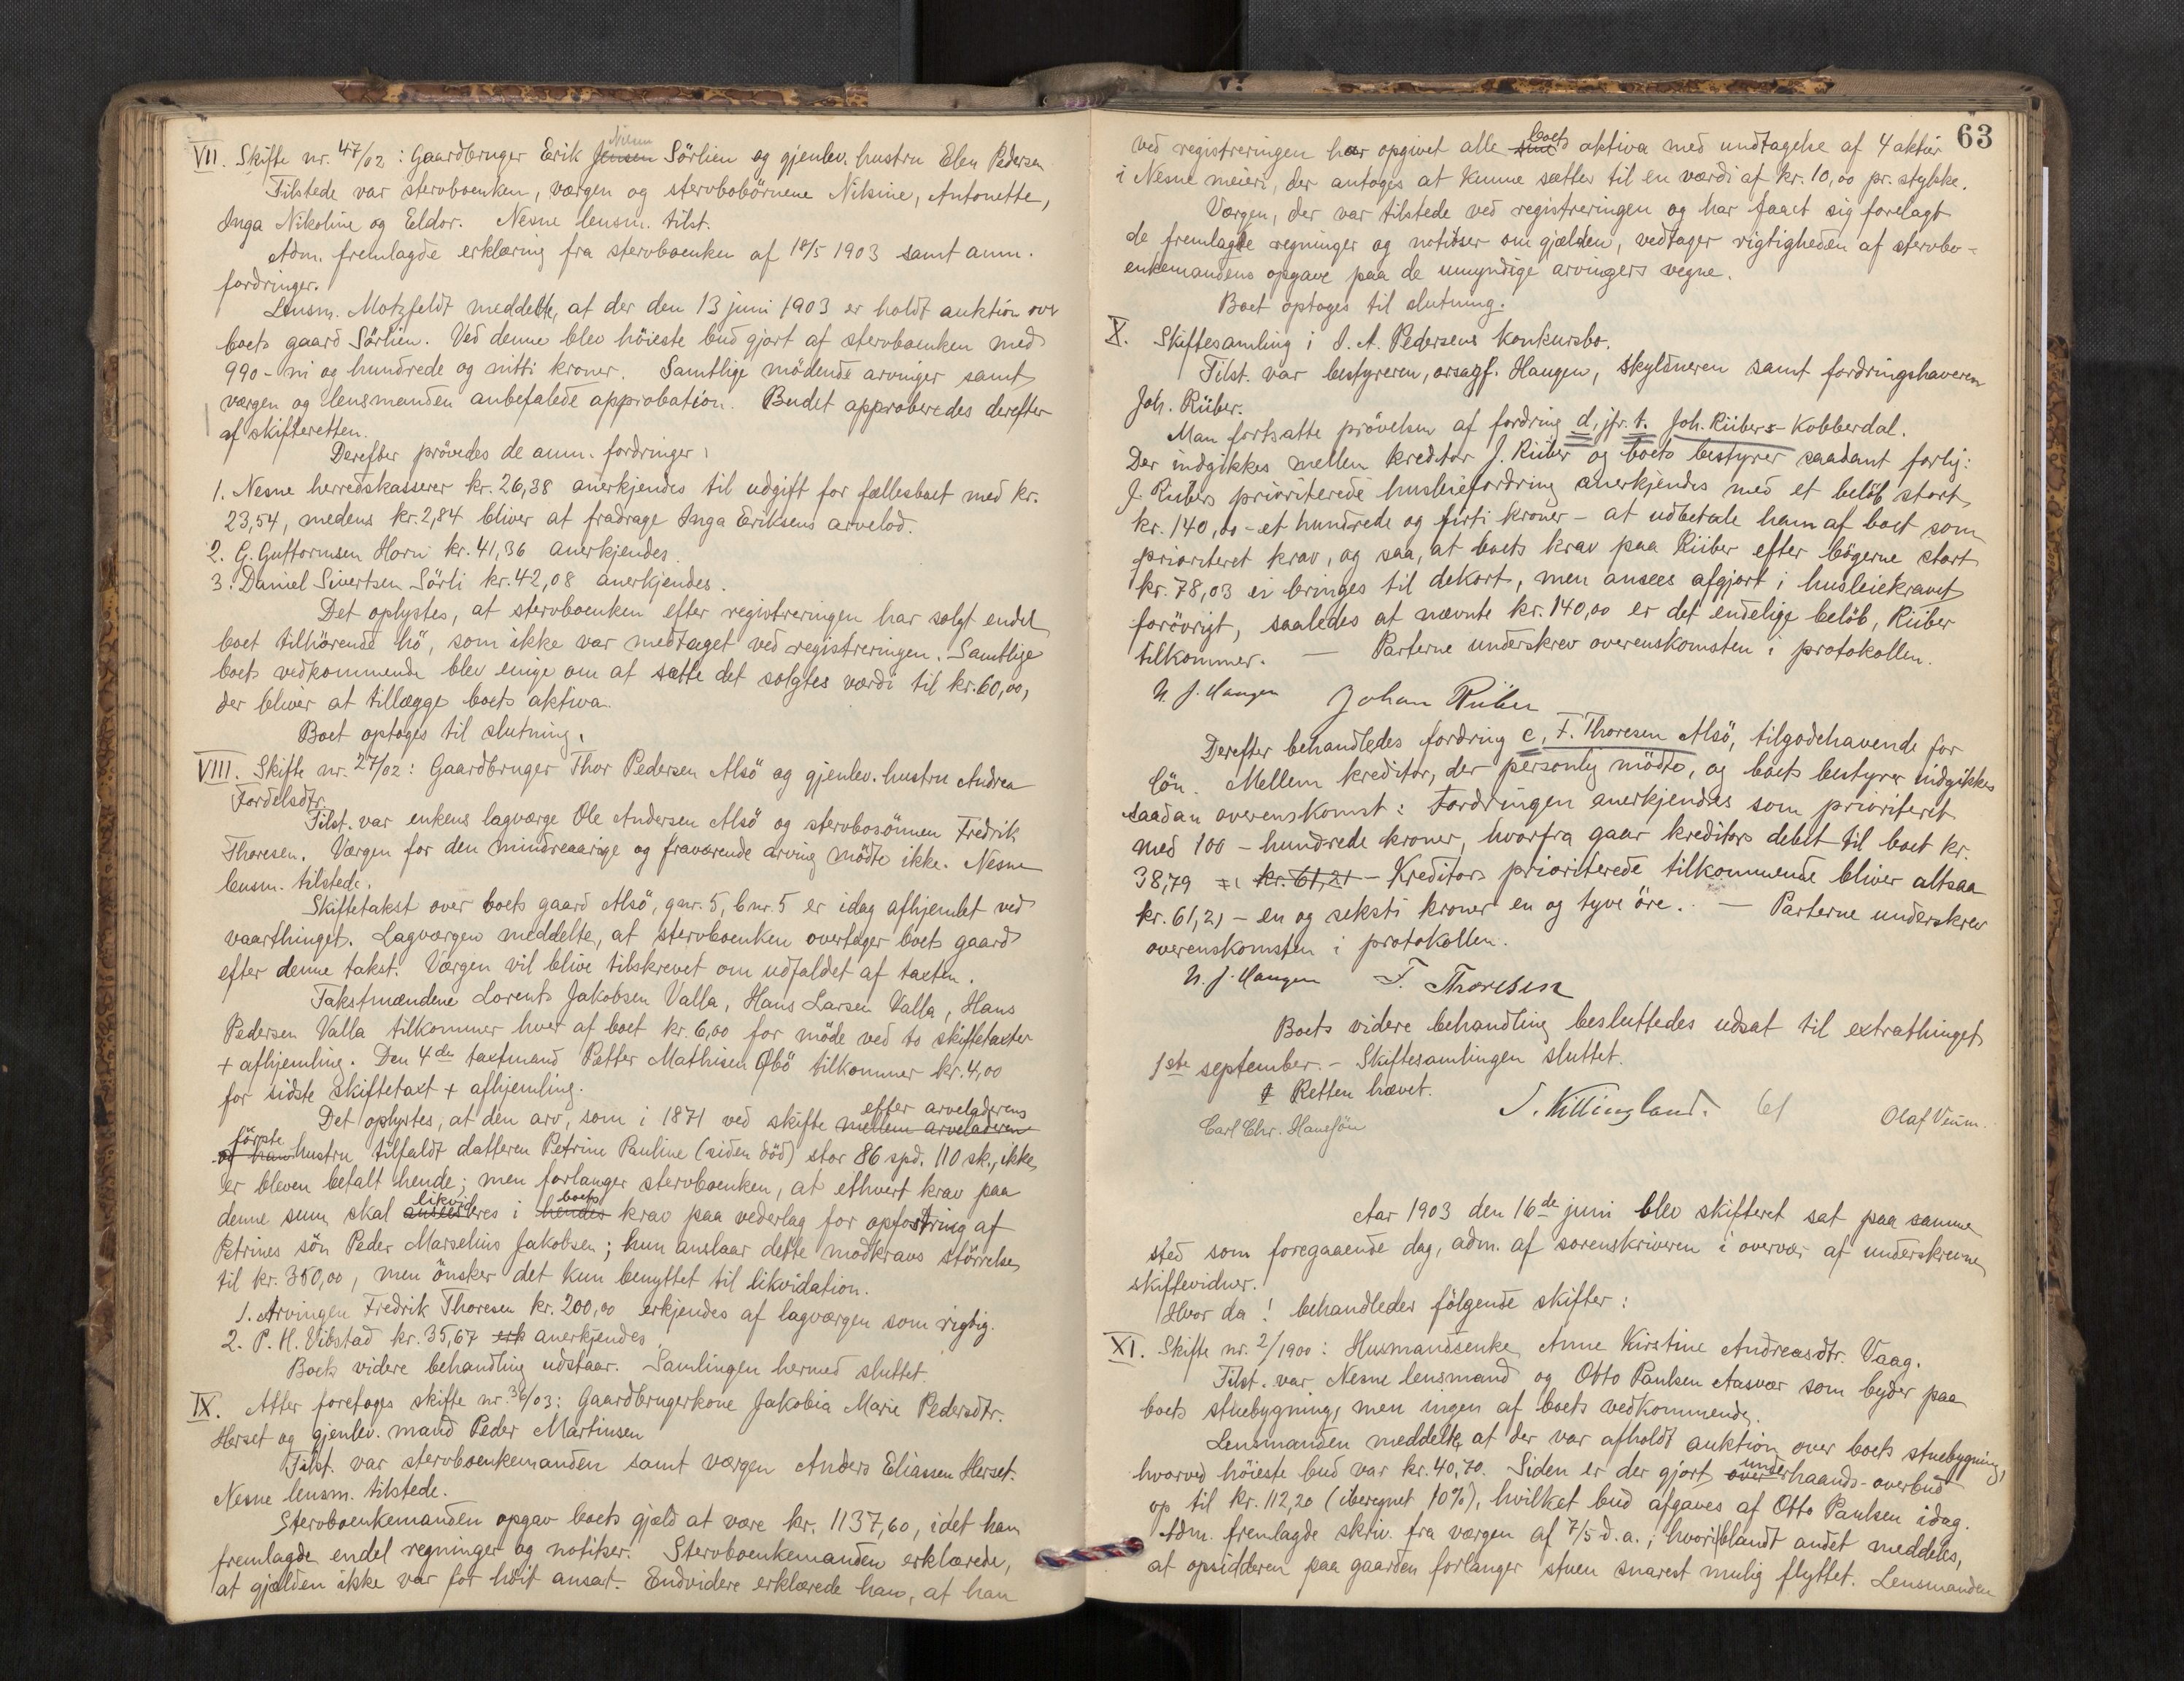 VII. Skifte nr. 47/02: Gaardbruger Erik Jensen Sörlien og gjenlev. hustru Elen Pedersen
Tilstede var stervboenken, værgen og stervbobörnene Niksine, Antonette,
Inga Nikoline og Eldor. Nesne lensm. tilst.
Adm. fremlagde erklæring fra stervboenken af 18/5 1903 samt anm.
fordringer.
Lensm. Motzfeldt meddelte, at der den 13 juni 1903 er holdt auktion over
boets gaard Sörlien. Ved denne blev höieste bud gjort af stervboenken med
990 - ni og hundrede og nitti kroner. Samtlige mödende arvinger samt
værgen og lensmanden anbefalede approbation. Budet approberedes derefter
af skifteretten.
Derefter prövedes de anm. fordringer:
1. Nesne herredskasserer kr. 26,38 anerkjendes til udgift for fællesboet med kr.
23,54, medens kr. 2,84 bliver at fradrage Inga Eriksens arvelod.
2. G. Guttormsen Horn kr. 41,36 anerkjendes.
3. Daniel Sivertsen Sörli kr. 42,08 anerkjendes.
Det oplystes, at stervboenken efter registreringen har solgt endel
boet tilhörende hö, som ikke var medtaget ved registreringen. Samtlige
boets vedkommende blev enige om at sætte det solgtes værdi til kr. 60,00,
der bliver at tillægge boets aktiva.
Boet optoges til slutning.
VIII. Skifte nr. 27/02: Gaardbruger Thor Pedersen Alsö og gjenlev. hustru Andrea
Fordelsdtr.
Tilst. var enkens lagværge Ole Andersen Alsö og stervbosönnen Fredrik
Thoresen. Værgen for den mindreaarige og fraværende arving mödte ikke. Nesne
lensm. tilstede.
Skiftetakst over boets gaard Alsö, gnr. 5, bnr. 5 er idag afhjemlet ved
vaarthinget. Lagværgen meddelte, at stervboenken overtager boets gaard
efter denne takst. Værgen vil blive tilskrevet om udfaldet af taxten.
Takstmændene Lorents Jakobsen Valla, Hans Larsen Valla, Hans
Pedersen Valla tilkommer hver af boet kr. 6,00 for möde ved to skiftetaxter
+ afhjemling. Den 4de taxtmand Petter Mathisen Øbö tilkommer kr. 4,00
for sidste skiftetaxt + afhjemling.
Det oplystes, at den arv, som i 1871 ved skifte mellem arveladeren efter arveladerens
og han förste hustru tilfaldt datteren Petrine Pauline (siden död) stor 86 spd. 110 sk., ikke
er bleven betalt hende; men forlanger stervboenken, at ethvert krav paa
denne sum skal ansees likvideres i hendes boets krav paa vederlag for opfostring af
Petrines sön Peder Marselius Jakobsen; hun anslaar dette modkravs störrelse
til kr. 350,00, men önsker det kun benyttet til likvidation.
1. Arvingen Fredrik Thoresen kr. 200,00 erkjendes af lagværgen som rigtig.
2. P. H. Vibstad kr. 35,67 erk anerkjendes.
Boets videre behandling udstaar. Samlingen hermed sluttet.
IX. Atter foretoges skifte nr. 36/03: Gaardbrugerkone Jakobia Marie Pedersdtr.
Herset og gjenlev. mand Peder Martinsen
Tilst. var stervboenkemanden samt værgen Anders Eliassen Herset.
Nesne lensm. tilstede.
Stervboenkemanden opgav boets gjæld at være kr. 1137,60, idet han
fremlagde endel regninger og notitser. Stervboenkemanden erklærede,
at gjælden ikke var for höit ansat. Endvidere erklærede han, at han
63
ved registreringen har opgivet alle sine boets aktiva med undtagelse af 4 aktier
i Nesne meieri, der antoges at kunne sættes til en værdi af kr. 10,00 pr. stykke.
Værgen, der var tilstede ved registreringen og har faaet sig forelagt
de fremlagte regninger og notitser om gjælden, vedtager rigtigheden af stervbo-
enkemandens opgave paa de umyndige arvingers vegne.
Boet optoges til slutning.
X. Skiftesamling i J. A. Pedersens konkursbo.
Tilst. var bestyreren, orsagf. Haugen, skyldneren samt fordringshaveren
Joh. Rüber.
Man fortsatte prövelsen af fordring d, jfr. t. Joh. Rübers - Kobberdal.
Der indgikkes mellem kreditor J. Rüber og boets bestyrer saadant forlig:
J. Rübers prioriterede husleiefordring anerkjendes med et belöb stort
kr. 140,00 - et hundrede og firti kroner - at udbetale ham af boet som
prioriteret krav, og saa, at boets krav paa Rüber efter bögerne stort
kr. 78,03 ei bringes til dekort, men ansees afgjort i husleiekravet
forövrigt, saaledes at nævnte kr. 140,00 er det endelige belöb, Rüber
tilkommer. — Parterne underskrev overenskomsten i protokollen.
N. J. Haugen Johan Rüber
Derefter behandledes fordring e, F. Thoresen Alsö, tilgodehavende for
lön. Mellem kreditor, der personlig mödte, og boets bestyrer indgikkes
saadan overenskomst: Fordringen anerkjendes som prioriteret
med 100 - hundrede kroner, hvorfra gaar kreditors debet til boet kr.
38,79 = kr. 61,21 - Kreditors prioriterede tilkommende bliver altsaa
kr. 61,21 - en og seksti kroner en og tyve öre. — Parterne underskrev
overenskomsten i protokollen.
N. J. Haugen F. Thoresen
Boets videre behandling besluttedes udsat til extrathinget
1ste september. - Skiftesamlingen sluttet.
Retten hævet.
S. Killingland.
Carl Chr. Hanssön Olaf Veum.
Aar 1903 den 16de juni blev skifteret sat paa samme
sted som foregaaende dag, adm. af sorenskriveren i overvær af underskrevne
skiftevidner.
Hvor da! behandledes fölgende skifter:
XI. Skifte nr. 2/1900: Husmandsenke Anne Kirstine Andreasdtr. Vaag.
Tilst. var Nesne lensmand og Otto Paulsen Aasvær som byder paa
boets stuebygning, men ingen af boets vedkommende.
Lensmanden meddelte, at der var afholdt auktion over boets stuebygning,
hvorved höieste bud var kr. 40,70. Siden er der gjort over underhaands-overbud
op til kr. 112,20 (iberegnet 10%), hvilket bud afgaves af Otto Paulsen idag.
Adm. fremlagde skriv. fra værgen af 7/5 d.a.; hvoriblandt andet meddeles,
at opsidderen paa gaarden forlanger stuen snarest mulig flyttet. Lensmanden